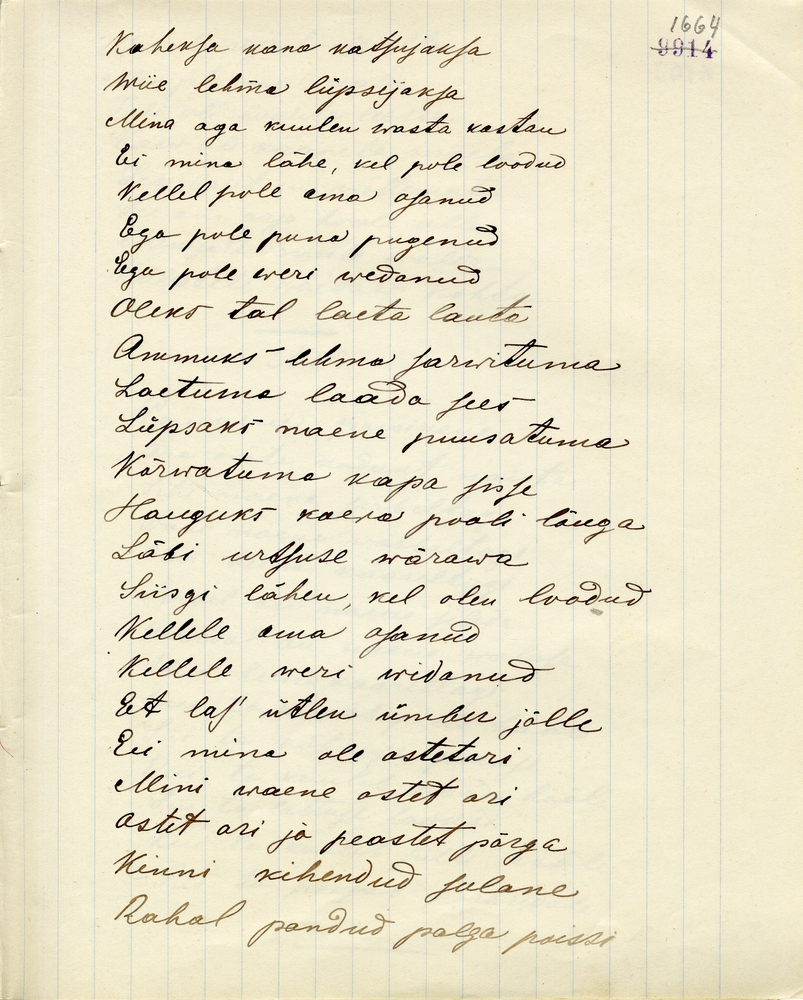 1664
9914
Kaheksa kana katsujaksa
Wiie lehma lüpsijaksa
Mina aga kuulen wasta kostan
Ei mina lähe, kel pole loodud
Kellel pole ema osanud
Ega pole puna pugenud
Ega pole weri wedanud
Oleks tal laeta lauta
Ammuks lehma sarwituma
Laetuma laada sees
Lüpsaks naene puusatuma
Kõrwatuma kapa sisse
Hauguks koera pooli lõuga
Läbi urtsuse wärawa
Siisgi lähen, kel olen loodud
Kellele ema osanud
Kellele weri widanud
Et las' ütlen ümber jälle
Eei mina ole ostetori
Mini waene ostet ori
Ostet ori ja peastet pärga
Kinni kihendud sulane
Rahal pandud palga poissi